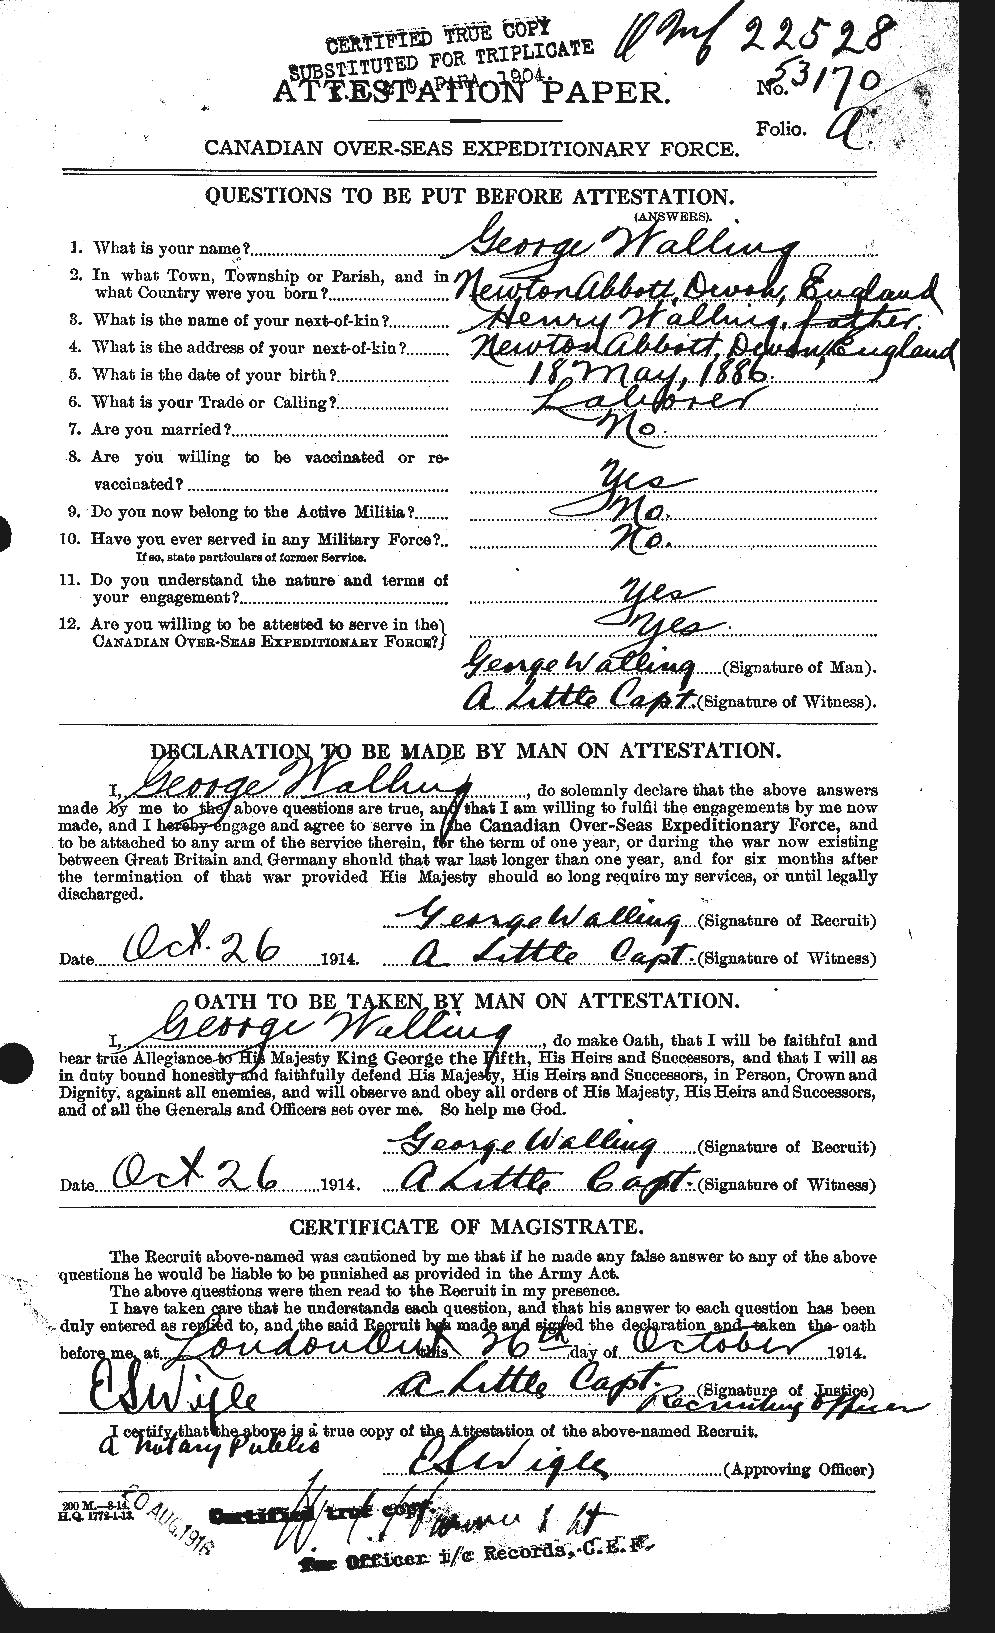 CERTIFIED TRUE COPY
SUBSTITUTED FOR TRIPLICATE
PARA 1904.
22528
ATTESTATION PAPER.
No. 53170
Folio. A.
CANADIAN OVER-SEAS EXPEDITIONARY FORCE.
QUESTIONS TO BE PUT BEFORE ATTESTATION.
(ANSWERS).
1. What is your name? George Walling
2. In what Town, Township or Parish, and in
what Country were you born? Newton Abbott, Devon, England
3. What is the name of your next-of-kin? Henry Walling, father
4. What is the address of your next-of-kin? Newton Abbott, Devon, England
5. What is the date of your birth? 18 May, 1886.
6. What is your Trade or Calling? Labourer
7. Are you married? No.
8. Are you willing to be vaccinated or re-
vaccinated? Yes
9. Do you now belong to the Active Militia? No.
10. Have you ever served in any Military Force? No.
If so, state particulars of former Service.
11. Do you understand the nature and terms of
your engagement? Yes
12. Are you willing to be attested to serve in the
CANADIAN OVER-SEAS EXPEDITIONARY FORCE? Yes.
George Walling (Signature of Man).
A Little Capt. (Signature of Witness).
DECLARATION TO BE MADE BY MAN ON ATTESTATION.
I, George Walling, do solemnly declare that the above answers
made by me to the above questions are true, and that I am willing to fulfil the engagements by me now
made, and I hereby engage and agree to serve in the Canadian Over-Seas Expeditionary Force, and
to be attached to any arm of the service therein, for the term of one year, or during the war now existing
between Great Britain and Germany should that war last longer than one year, and for six months after
the termination of that war provided His Majesty should so long require my services, or until legally
discharged.
George Walling (Signature of Recruit)
Date Oct. 26 1914. A Little Capt. (Signature of Witness)
OATH TO BE TAKEN BY MAN ON ATTESTATION.
I, George Walling, do make Oath, that I will be faithful and
bear true Allegiance to His Majesty King George the Fifth, His Heirs and Successors, and that I will as
in duty bound honestly and faithfully defend His Majesty, His Heirs and Successors, in Person, Crown and
Dignity, against all enemies, and will observe and obey all orders of His Majesty, His Heirs and Successors,
and of all the Generals and Officers set over me. So help me God.
George Walling (Signature of Recruit)
Date Oct 26 1914. A Little Capt. (Signature of Witness)
CERTIFICATE OF MAGISTRATE.
The Recruit above-named was cautioned by me that if he made any false answer to any of the above
questions he would be liable to be punished as provided in the Army Act.
The above questions were then read to the Recruit in my presence.
I have taken care that he understands each question, and that his answer to each question has been
duly entered as replied to, and the said Recruit has made and signed the declaration and taken the oath
before me, at London Ont this 26th day of October 1914.
A Little Capt. (Signature of Justice)
ESWigle Recruiting Officer
I certify that the above is a true copy of the Attestation of the above-named Recruit.
A Notary Public
ESWigle (Approving Officer)
200 M.—8-14.
H.Q. 1772-1-13.
20 AUG. 1918
Certified true copy.
For Officer i/c Records, C.E.F.